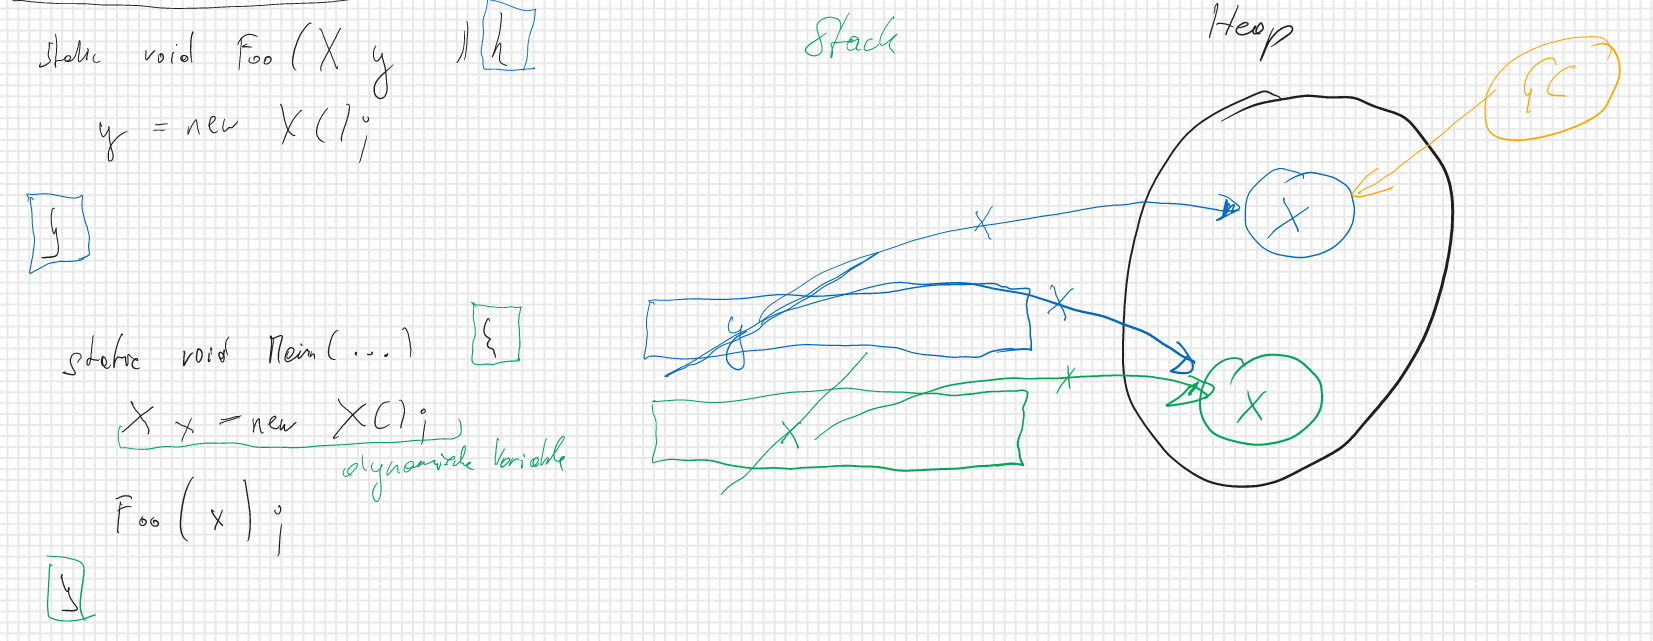 static void Foo (X y) {
y = new X();
}
static void Main(...) {
X x = new X();
dynamische Variable
Foo (x);
}
Stack
y
x
Heap
X
X
GC